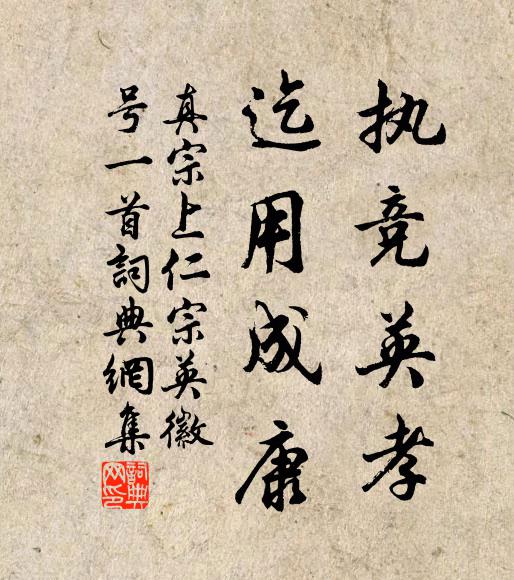 执竞英孝
迄用成康
真宗上仁宗英徽
号一首詞典網集
詞典网印